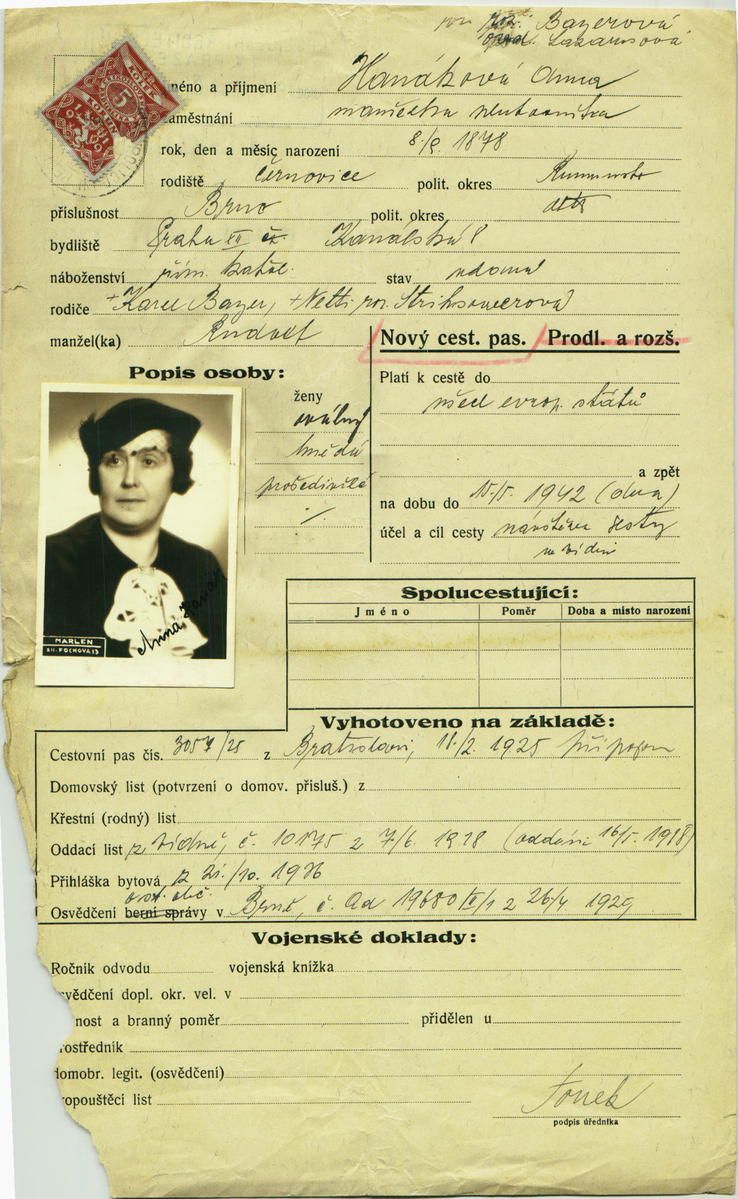 roz. Bayerová
Lazarusová
jméno a příjmení Hanáková Anna
zaměstnání manželka
rok, den a měsíc narození 8./9. 1878
rodiště Černovice polit. okres Rumunsko
příslušnost Brno polit. okres
bydliště Praha XII Kanálská 8
náboženství řím. katol. stav vdova
rodiče +Karel Bayer, +Netti roz.
manžel(ka) Rudolf
Nový cest. pas. Prodl. a rozš.
Popis osoby:
Platí k cestě do všech evrop. států
ženy
oválný
hnědé
prošedivělé
a zpět
na dobu do 15./5. 1942 (dva)
účel a cíl cesty návštěva sestry
ve Vídni
Anna Hanák
MARLEN
XII. FOCHOVA 13
Spolucestující:
Jméno Poměr Doba a místo narození
Vyhotoveno na základě:
Cestovní pas čís. 3057/25 z Bratislavy, 11./2. 1925 připojen
Domovský list (potvrzení o domov. přísluš.) z
Křestní (rodný) list
Oddací list z Vídně, č. 10175 z 7/6. 1918 (oddáni 16/5. 1918)
Přihláška bytová z 21./10. 1936
osv. obč.
Osvědčení berní správy v Brně, č. ad 19680 z 26/4 1929
Vojenské doklady:
Ročník odvodu vojenská knížka
svědčení dopl. okr. vel. v
nost a branný poměr přidělen u
rostředník
domobr. legit. (osvědčení)
ropouštěcí list
podpis úředníka